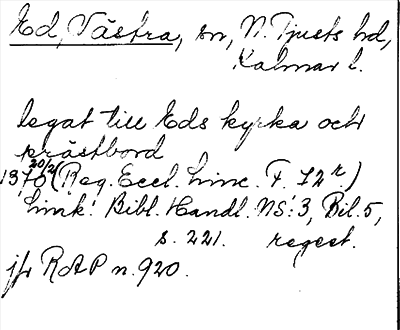 Ed, Västra, sn, N. Tjusts hd,
Kalmar l.
legat till Eds kyrka och
prästbord
20/2
1370 (Reg. Eccl. Linc. F. 72r)
Link. Bibl. Handl. NS: 3, Bil. 5,
s. 221. regest.
jfr RAP n. 920.